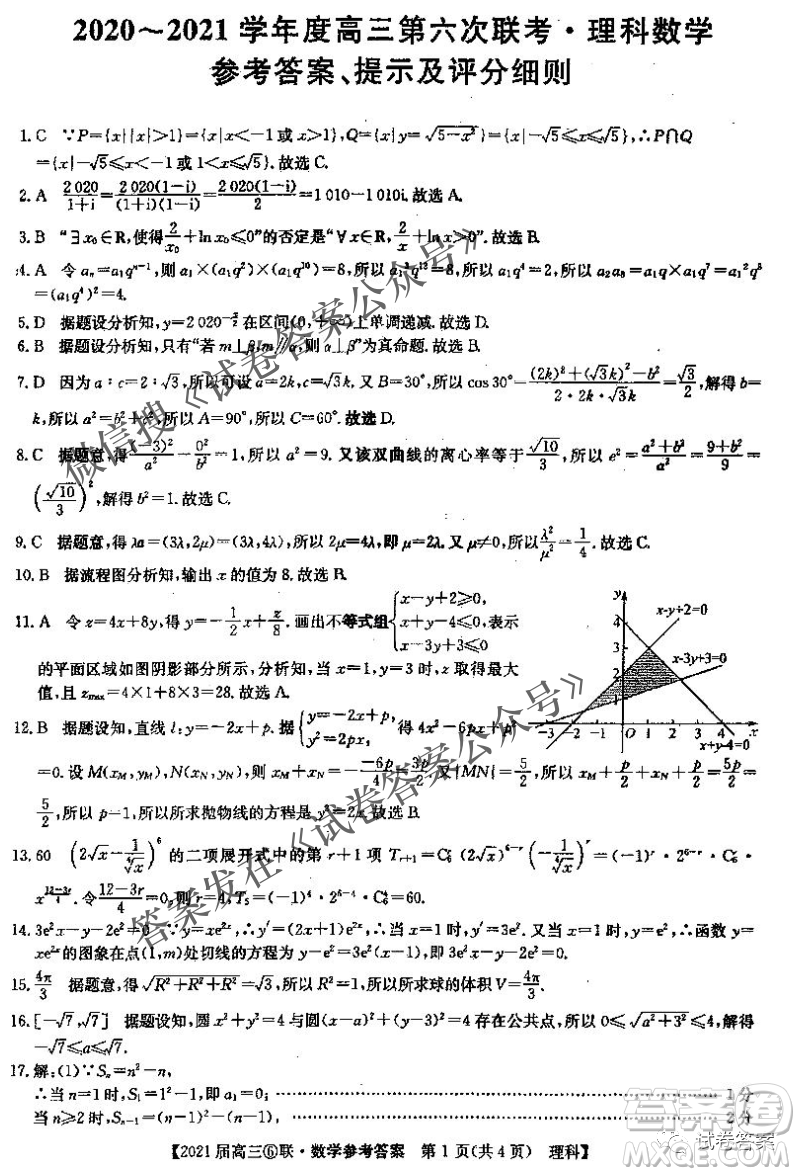 2020～2021 学年度高三第六次联考·理科数学
参考答案、提示及评分细则
1. C ∵P={x||x|>1}={x|x<-1或x>1},Q={x|y=√(5-x²)}={x|-√5≤x≤√5},∴P∩Q
={x|-√5≤x<-1或1<x≤√5}.故选C.
2. A 2 020/(1+i)=2 020(1-i)/((1+i)(1-i))=2 020(1-i)/2=1 010-1 010i.故选A.
3. B “∃x₀∈R,使得2/x₀+ln x₀≤0”的否定是“∀x∈R,2/x+ln x>0”.故选B.
4. A 令aₙ=a₁qⁿ⁻¹,则a₁×(a₁q²)×(a₁q¹⁰)=8,所以a₁³q¹²=8,所以a₁q⁴=2,所以a₂a₈=a₁q×a₁q⁷=a₁²q⁸
=(a₁q⁴)²=4.
5. D 据题设分析知,y=2 020 在区间(0,+∞)上单调递减.故选D.
6. B 据题设分析知,只有“若m⊥β,m∥α,则α⊥β”为真命题.故选B.
7. D 因为a∶c=2∶√3,所以可设a=2k,c=√3k.又B=30°,所以cos 30°=((2k)²+(√3k)²-b²)/(2·2k·√3k)=√3/2,解得b=
k,所以a²=b²+c²,所以A=90°,所以C=60°.故选D.
8. C 据题意,得(-3)²/a²-0²/b²=1,所以a²=9.又该双曲线的离心率等于√10/3,所以e²=(a²+b²)/a²=(9+b²)/9=
(√10/3)²,解得b²=1.故选C.
9. C 据题意,得λa=(3λ,2μ)=(3λ,4λ),所以2μ=4λ,即μ=2λ.又μ≠0,所以λ²/μ²=1/4.故选C.
10. B 据流程图分析知,输出x的值为8.故选B.
11. A 令z=4x+8y,得y=-1/2x+z/8.画出不等式组{x-y+2≥0, x+y-4≤0, x-3y+3≤0
的平面区域如图阴影部分所示,分析知,当x=1,y=3时,z取得最大
值,且zmax=4×1+8×3=28.故选A.
y
4
3
2
1
x-y+2=0
x-3y+3=0
-3 -2 -1 O 1 2 3 4 x
x+y-4=0
12. B 据题设知,直线l:y=-2x+p.据{y=-2x+p, y²=2px, 得4x²-6px+p²
=0.设M(xM,yM),N(xN,yN),则xM+xN=-(-6p)/4=3p/2.又|MN|=5/2,所以xM+p/2+xN+p/2=5p/2=
5/2,所以p=1,所以所求抛物线的方程是y²=2x.故选B.
13. 60 (2√x-1/⁴√x)⁶的二项展开式中的第r+1项Tr+1=C₆ʳ(2√x)⁶⁻ʳ(-1/⁴√x)ʳ=(-1)ʳ·2⁶⁻ʳ·C₆ʳ·
x^((12-3r)/4).令(12-3r)/4=0,得r=4,T₅=(-1)⁴·2⁶⁻⁴·C₆⁴=60.
14. 3e²x-y-2e²=0 ∵y=xe²ˣ⁻¹,∴y′=(2x+1)e²ˣ.∴当x=1时,y′=3e².又当x=1时,y=e²,∴函数y=
xe²ˣ的图象在点(1,m)处切线的方程为y-e²=3e²(x-1),即3e²x-y-2e²=0.
15. 4π/3 据题意,得√(R²+R²+R²)=√3,所以R=1,所以所求球的体积V=4π/3.
16. [-√7,√7] 据题设知,圆x²+y²=4与圆(x-a)²+(y-3)²=4存在公共点,所以0≤√(a²+3²)≤4,解得
-√7≤a≤√7.
17. 解:(1)∵Sₙ=n²-n,
∴当n=1时,S₁=1²-1,即a₁=0; 1分
当n≥2时,Sₙ₋₁=(n-1)²-(n-1). 2分
【2021届高三⑥联·数学参考答案 第1页(共4页) 理科】
微信搜《试卷答案公众号》
答案发在《试卷答案公众号》
试卷答案